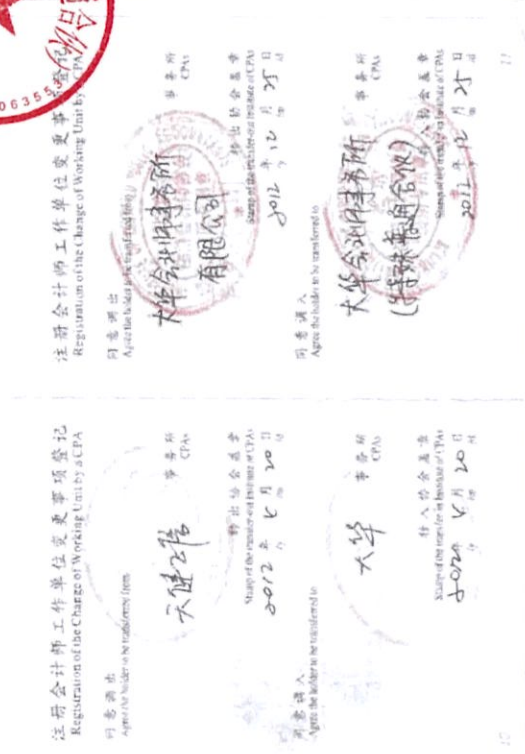 注册会计师工作单位变更事项登记
Registration of the Change of Working Unit by a CPA
同意调出
Agree the holder to be transferred from
事务所
CPAs
转出协会盖章
Stamp of the transfer-out Institute of CPAs
2012 年 月 20 日
同意调入
Agree the holder to be transferred to
大华
事务所
CPAs
转入协会盖章
Stamp of the transfer-in Institute of CPAs
年 月 20 日
10
注册会计师工作单位变更事项登记
Registration of the Change of Working Unit by a CPA
同意调出
Agree the holder to be transferred from
大华会计师事务所
有限公司
事务所
CPAs
转出协会盖章
Stamp of the transfer-out Institute of CPAs
2012 年 12 月 25 日
同意调入
Agree the holder to be transferred to
大华会计师事务所
(特殊普通合伙)
事务所
CPAs
转入协会盖章
Stamp of the transfer-in Institute of CPAs
2012 年 12 月 25 日
11